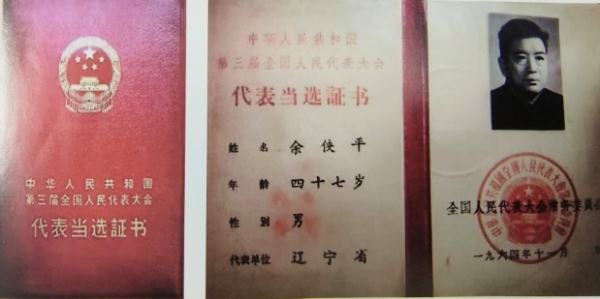 中华人民共和国
第三届全国人民代表大会
代表当选証书
中华人民共和国
第三届全国人民代表大会
代表当选証书
姓名 余侠平
年龄 四十七岁
性别 男
代表单位 辽宁省
全国人民代表大会常务委员会
一九六四年十一月